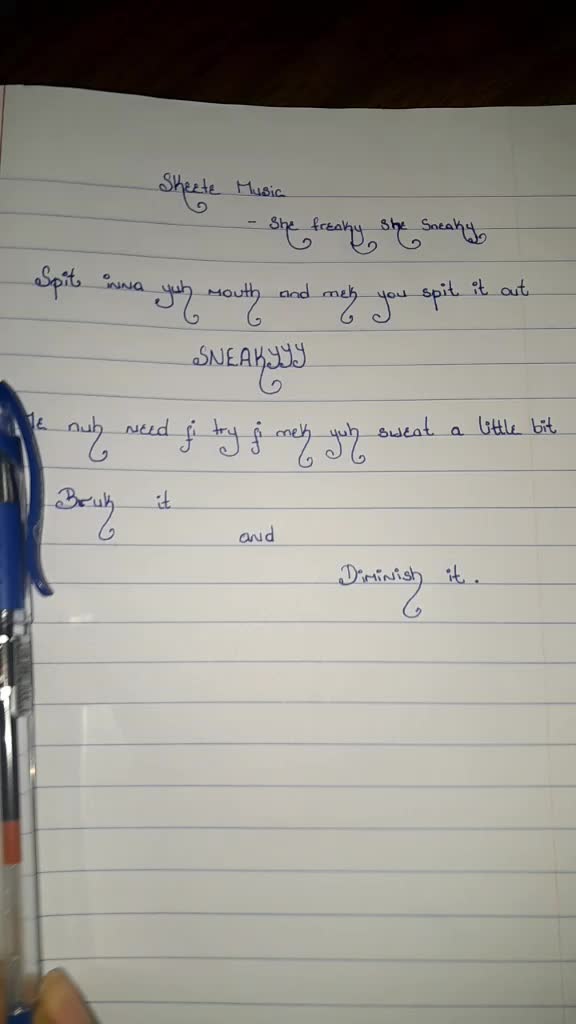 Skeete Music
- She freaky she sneaky
Spit inna yuh mouth and mek you spit it out
SNEAKYYY
nuh need fi try fi mek yuh sweat a little bit
Bruk it
and
Diminish it.